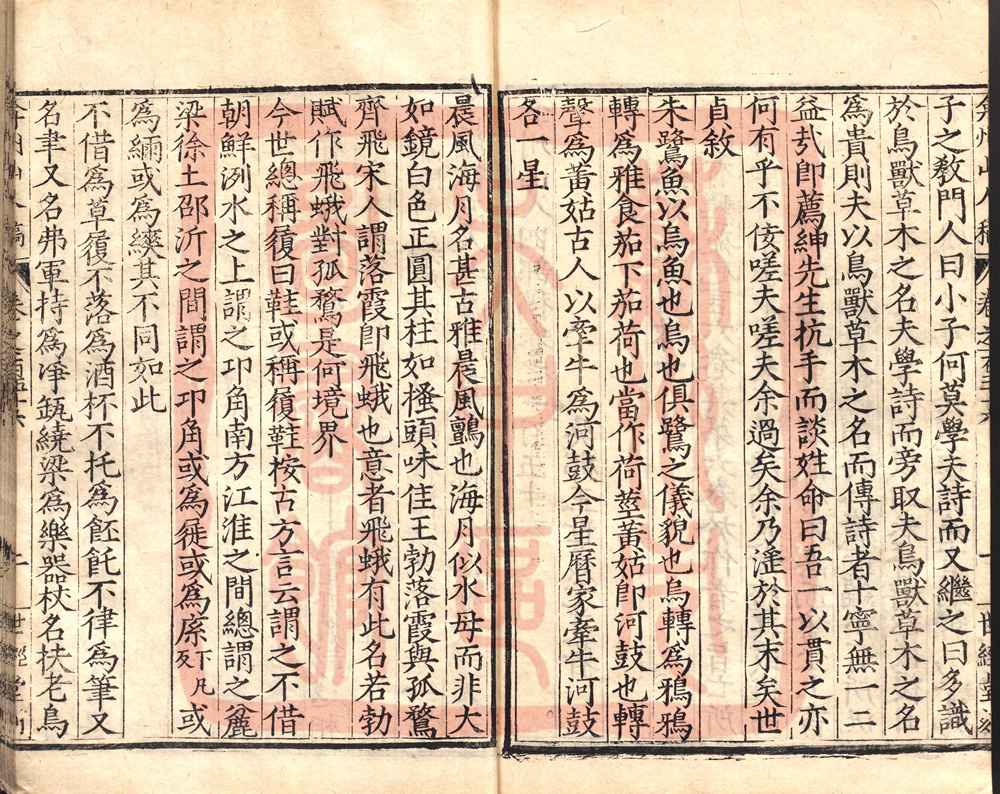 弇州山人稿 卷之一百五十六 一 世經堂刻
子之敎門人曰小子何莫學夫詩而又繼之曰多識
於鳥獸草木之名夫學詩而旁取夫鳥獸草木之名
爲貴則夫以鳥獸草木之名而傳詩者十寧無一二
益㢤卽薦紳先生抗手而談姓命曰吾一以貫之亦
何有乎不佞嗟夫嗟夫余過矣余乃滛於其末矣世
貞敘
朱鷺魚以烏魚也烏也俱鷺之儀貌也烏轉爲鴉鴉
轉爲雅食茄下茄荷也當作荷莖黃姑卽河鼓也轉
聲爲黃姑古人以牽牛爲河鼓今星曆家牽牛河鼓
各一星
晨風海月名甚古雅晨風鸇也海月似水母而非大
如鏡白色正圓其柱如搔頭味佳王勃落霞與孤鶩
齊飛宋人謂落霞卽飛蛾也意者飛蛾有此名若勃
賦作飛蛾對孤鶩是何境界
今世總稱履曰鞋或稱履鞋桉古方言云謂之不借
朝鮮洌水之上謂之卬角南方江淮之間總謂之麄
梁徐土邳沂之間謂之卬角或爲屣或爲屝下凡或
爲緉或爲緛其不同如此
不借爲草履不落爲酒杯不托爲飥不律爲筆又
名聿又名弗軍持爲凈瓶繞梁爲樂器杖名扶老鳥